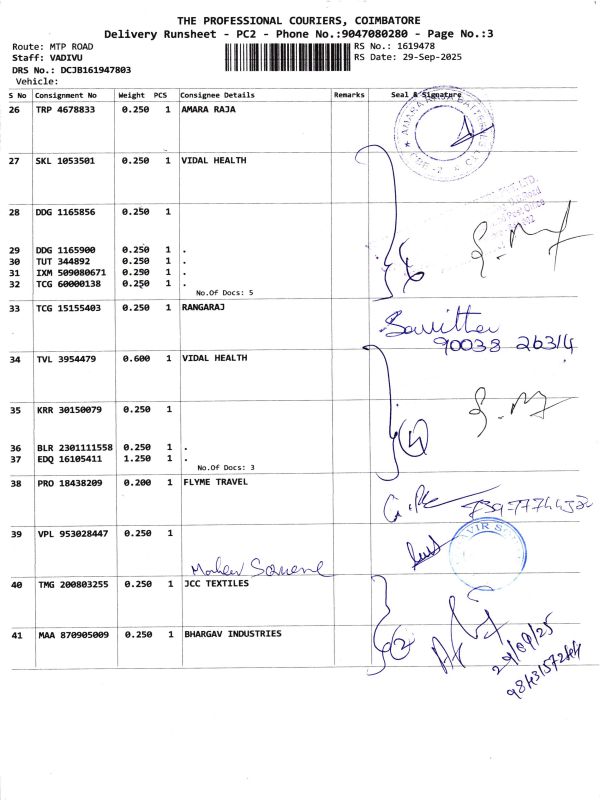 THE PROFESSIONAL COURIERS, COIMBATORE
Delivery Runsheet - PC2 - Phone No.:9047080280 - Page No.:3
Route: MTP ROAD
RS No.: 1619478
Staff: VADIVU
RS Date: 29-Sep-2025
DRS No.: DCJB161947803
Vehicle:
S No Consignment No Weight PCS Consignee Details Remarks Seal & Signature
26 TRP 4678833 0.250 1 AMARA RAJA
27 SKL 1053501 0.250 1 VIDAL HEALTH
28 DDG 1165856 0.250 1
29 DDG 1165900 0.250 1 .
30 TUT 344892 0.250 1 .
31 IXM 509080671 0.250 1 .
32 TCG 60000138 0.250 1 .
No.Of Docs: 5
33 TCG 15155403 0.250 1 RANGARAJ
90038 26314
34 TVL 3954479 0.600 1 VIDAL HEALTH
35 KRR 30150079 0.250 1
4
36 BLR 2301111558 0.250 1 .
37 EDQ 16105411 1.250 1 .
No.Of Docs: 3
38 PRO 18438209 0.200 1 FLYME TRAVEL
39 VPL 953028447 0.250 1
40 TMG 200803255 0.250 1 JCC TEXTILES
41 MAA 870905009 0.250 1 BHARGAV INDUSTRIES
2
29/09/25